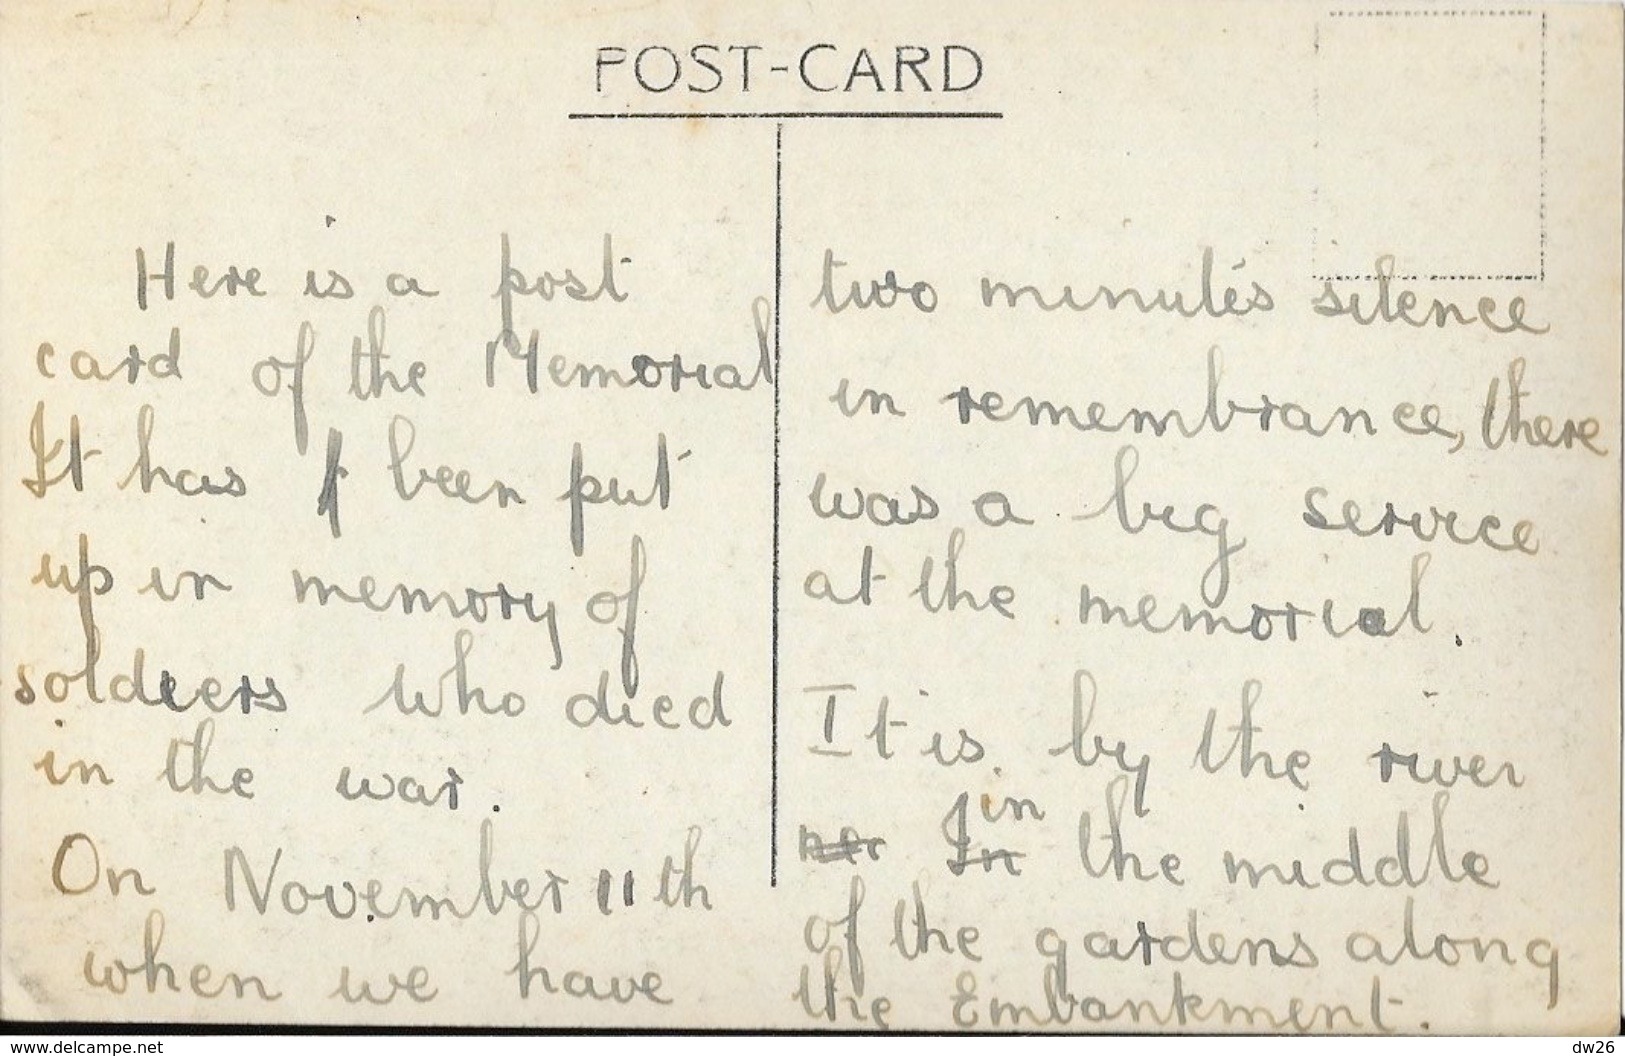 POST-CARD
Here is a post
card of the Memorial
It has been put
up in memory of
soldiers who died
in the war.
On November 11th
when we have
two minute's silence
in remembrance, there
was a big service
at the memorial.
It is by the river
in
In the middle
of the gardens along
the Embankment.
www.delcampe.net
dw26